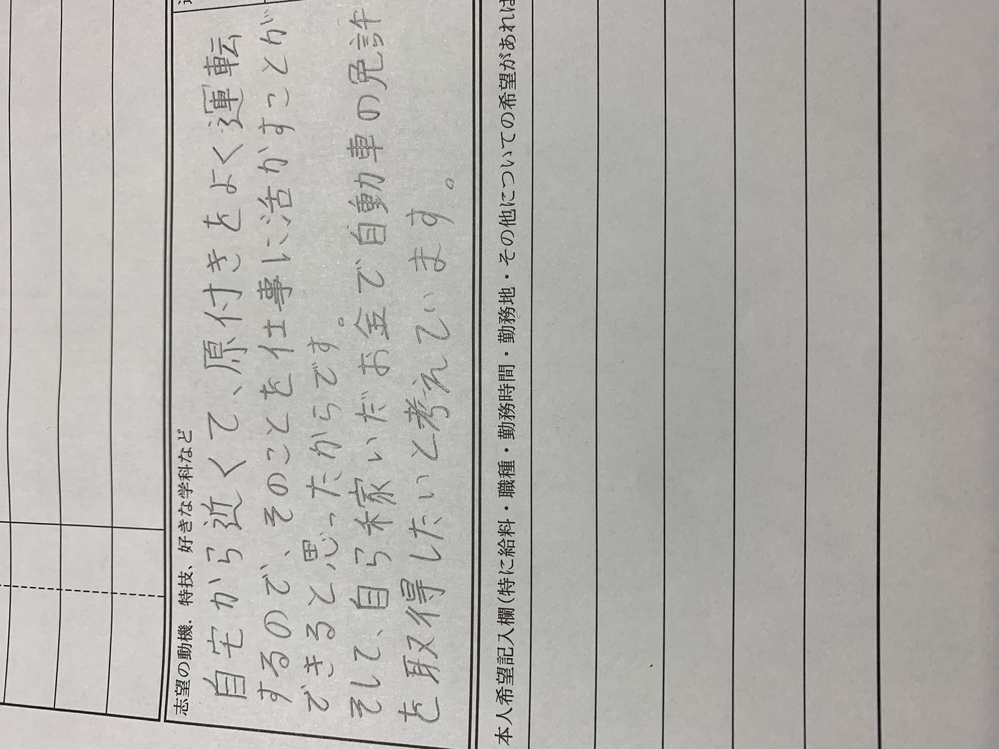 志望の動機.特技、好きな学科など
自宅から近くて、原付きをよく運転
するので、そのことを仕事に活かすことが
できると思ったからです。
そして、自ら稼いだお金で自動車の免許
を取得したいと考えています。
本人希望記入欄(特に給料・職種・勤務時間・勤務地・その他についての希望があれば